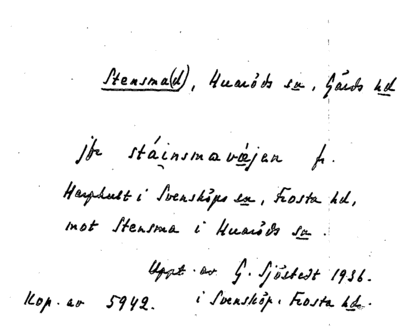 Stensma(d), Huaröds sn, Gärds hd
jfr stáinsmavæjen fr.
Harphult i Svensköps sn, Frosta hd,
mot Stensma i Huaröds sn.
Uppt. av G. Sjöstedt 1936.
Kop. av 5942. i Svensköp, Frosta hd.